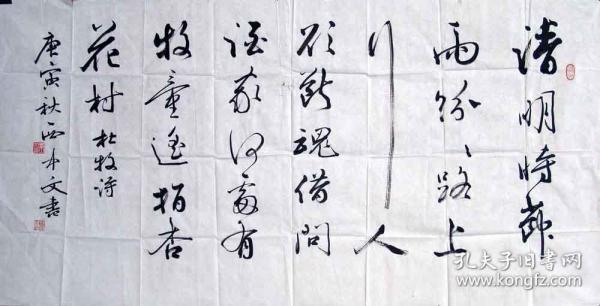 清明時節
雨紛々路上
行人
欲斷魂借問
酒家何處有
牧童遙指杏
花村 杜牧詩
庚寅秋西文書
孔夫子旧书网
www.kongfz.com